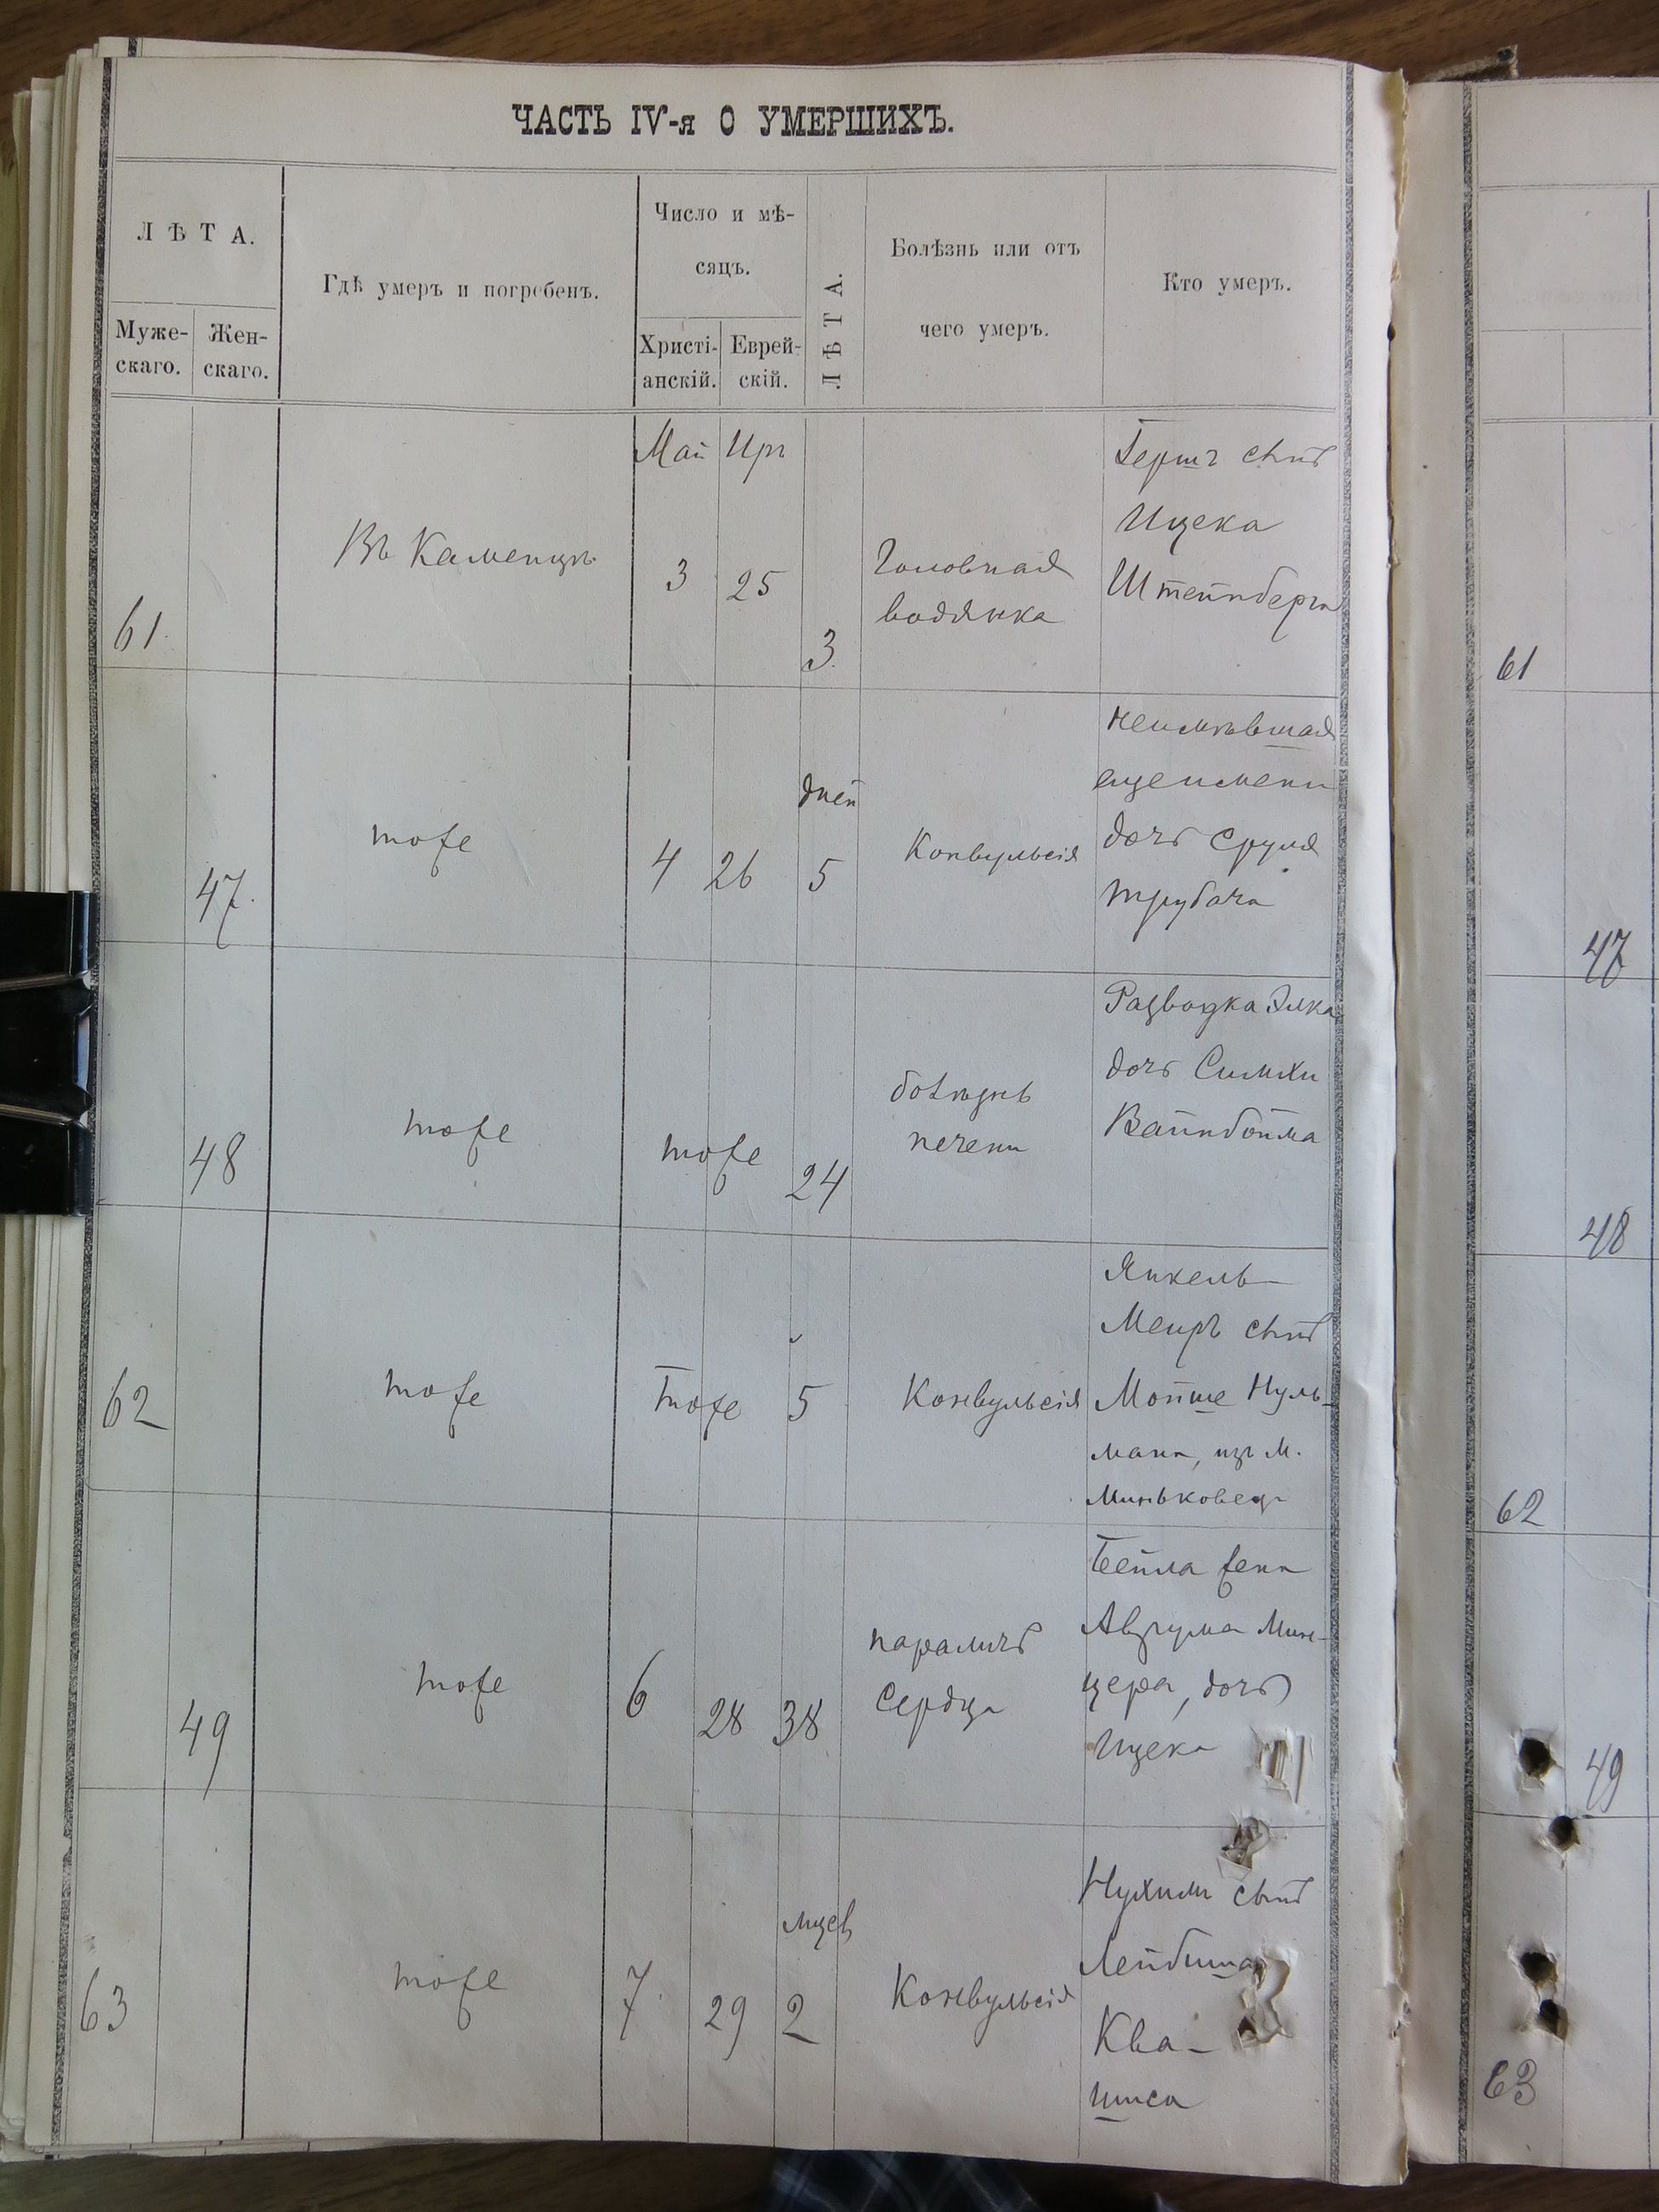 ЧАСТЬ IV-я О УМЕРШИХЪ.
ЛѢТА.
Муже-
скаго.
Жен-
скаго.
Гдѣ умеръ и погребенъ.
Число и мѣ-
сяцъ.
Христі-
анскій.
Еврей-
скій.
ЛѢТА.
Болѣзнь или отъ
чего умеръ.
Кто умеръ.
61
Въ Каменцѣ
Май Иръ
3 25
3
Головная
водянка
Гершъ сынъ
Ицека
Штейнберга
61
47
тоже
4 26
дней
5
Конвульсія
неимѣвшая
еще имени
дочь Сруля
Трубача
47
48
тоже
тоже
24
болѣзнь
печени
Разводка Элка
дочь Симхи
Вайнбойма
48
62
тоже
тоже
5
Конвульсія
Янкель-
Меиръ сынъ
Мойше Нуль-
мана, изъ м.
Миньковецъ
62
49
тоже
6 28 38
параличъ
сердца
Бейла жена
Аврума Мин-
цера, дочь
Ицека
49
63
тоже
7 29
мцев
2
Конвульсія
Нухимъ сынъ
Лейбиша
Ква-
шиса
63